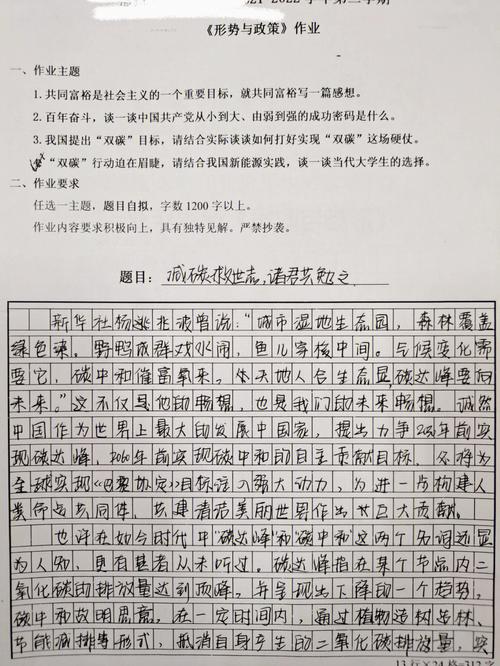 2021-2022 学年第二学期
《形势与政策》作业
一、作业主题
1.共同富裕是社会主义的一个重要目标，就共同富裕写一篇感想。
2.百年奋斗，谈一谈中国共产党从小到大、由弱到强的成功密码是什么。
3.我国提出“双碳”目标，请结合实际谈谈如何打好实现“双碳”这场硬仗。
“双碳”行动迫在眉睫，请结合我国新能源实践，谈一谈当代大学生的选择。
二、作业要求
任选一主题，题目自拟，字数 1200 字以上。
作业内容要求积极向上，具有独特见解。严禁抄袭。
题目：减碳救世志,诸君共勉之
新华社杨逃兆波曾说：“城市湿地生态园，森林覆盖
绿色染。野鸭成群戏水闹，鱼儿穿梭中间。气候变化需
要它，碳中和催富氧来。冬天地人合生态显，碳达峰要向
未来。”这不仅是他的畅想，也是我们的未来畅想。诚然
中国作为世界上最大的发展中国家，提出力争2030年前实
现碳达峰，2060年前实现碳中和的自主贡献目标，必将为
全球实现《巴黎协定》目标注入强大动力，为进一步构建人
类命运共同体、共建清洁美丽世界作出巨大贡献。
也许在如今时代中“碳达峰”和“碳中和”这两个名词还显
为人知，更有甚者从未听过。碳达峰指在某个节点内二
氧化碳的排放量达到顶峰，并呈现出下降的一个趋势。
碳中和故明思意，在一定时间内，通过植物造树造林、
节能减排等形式，抵消自身产生的二氧化碳排放量，实
13 行×24 格=312 字